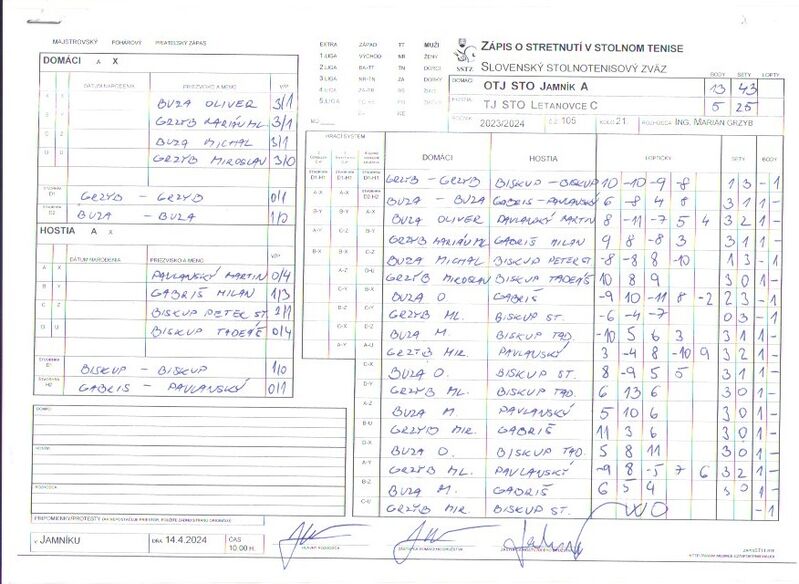 MAJSTROVSKÝ POHÁROVÝ PRIATEĽSKÝ ZÁPAS
DOMÁCI A X
DÁTUM NARODENIA PRIEZVISKO A MENO V/P
BUZA OLIVER 3/1
GRZYB MARIÁN ML. 3/1
BUZA MICHAL 3/1
GRZYB MIROSLAV 3/0
GRZYB - GRZYB 0/1
BUZA - BUZA 1/0
HOSTIA A X
DÁTUM NARODENIA PRIEZVISKO A MENO V/P
PAVLANSKÝ MARTIN 0/4
GABRIŠ MILAN 1/3
BISKUP PETER ST.
BISKUP TADEÁŠ 0/4
BISKUP - BISKUP 1/0
GABRIŠ - PAVLANSKÝ 0/1
DOMÁCI
HOSTIA
ROZHODCA
PRIPOMIENKY/PROTESTY
V JAMNÍKU DŇA 14.4.2024 ČAS 10:00 H.
EXTRA ZÁPAD TT MUŽI
1.LIGA VÝCHOD NR ŽENY
2.LIGA BA-TT TN DORCI
3.LIGA NR-TN ZA DORKY
4.LIGA
5.LIGA
SSTZ
ZÁPIS O STRETNUTÍ V STOLNOM TENISE
SLOVENSKÝ STOLNOTENISOVÝ ZVÄZ
BODY SETY LOPTY
DOMÁCI OTJ STO JAMNÍK A 13 43
HOSTIA TJ STO LETANOVCE C 5 25
ROČNÍK 2023/2024 Č.Z. 105 KOLO 21 ROZHODCA ING. MARIÁN GRZYB
HRACÍ SYSTÉM
DOMÁCI HOSTIA LOPTIČKY SETY BODY
GRZYB - GRZYB BISKUP - BISKUP 10 -10 -9 -8 1 3 - 1
BUZA - BUZA GABRIŠ - PAVLANSKÝ 6 -8 4 8 3 1 1 -
BUZA OLIVER PAVLANSKÝ MARTIN 8 -11 -7 5 4 3 2 1 -
GRZYB MARIÁN ML. GABRIŠ MILAN 9 8 -8 3 3 1 1 -
BUZA MICHAL BISKUP PETER ST. -8 -8 8 -10 1 3 - 1
GRZYB MIROSLAV BISKUP TADEÁŠ 10 8 9 3 0 1 -
BUZA O. GABRIŠ -9 10 -11 8 -2 2 3 - 1
GRZYB ML. BISKUP ST. -6 -4 -7 0 3 - 1
BUZA M. BISKUP TAD. -10 5 6 3 3 1 1 -
GRZYB MIR. PAVLANSKÝ 3 -4 8 -10 9 3 2 1 -
BUZA O. BISKUP ST. 8 -9 5 5 3 1 1 -
GRZYB ML. BISKUP TAD. 6 13 6 3 0 1 -
BUZA M. PAVLANSKÝ 5 10 6 3 0 1 -
GRZYB MIR. GABRIŠ 11 3 6 3 0 1 -
BUZA O. BISKUP TAD. 5 8 11 3 0 1 -
GRZYB ML. PAVLANSKÝ -9 8 -5 7 6 3 2 1 -
BUZA M. GABRIŠ 6 5 4 3 0 1 -
GRZYB MIR. BISKUP ST. WO - 1